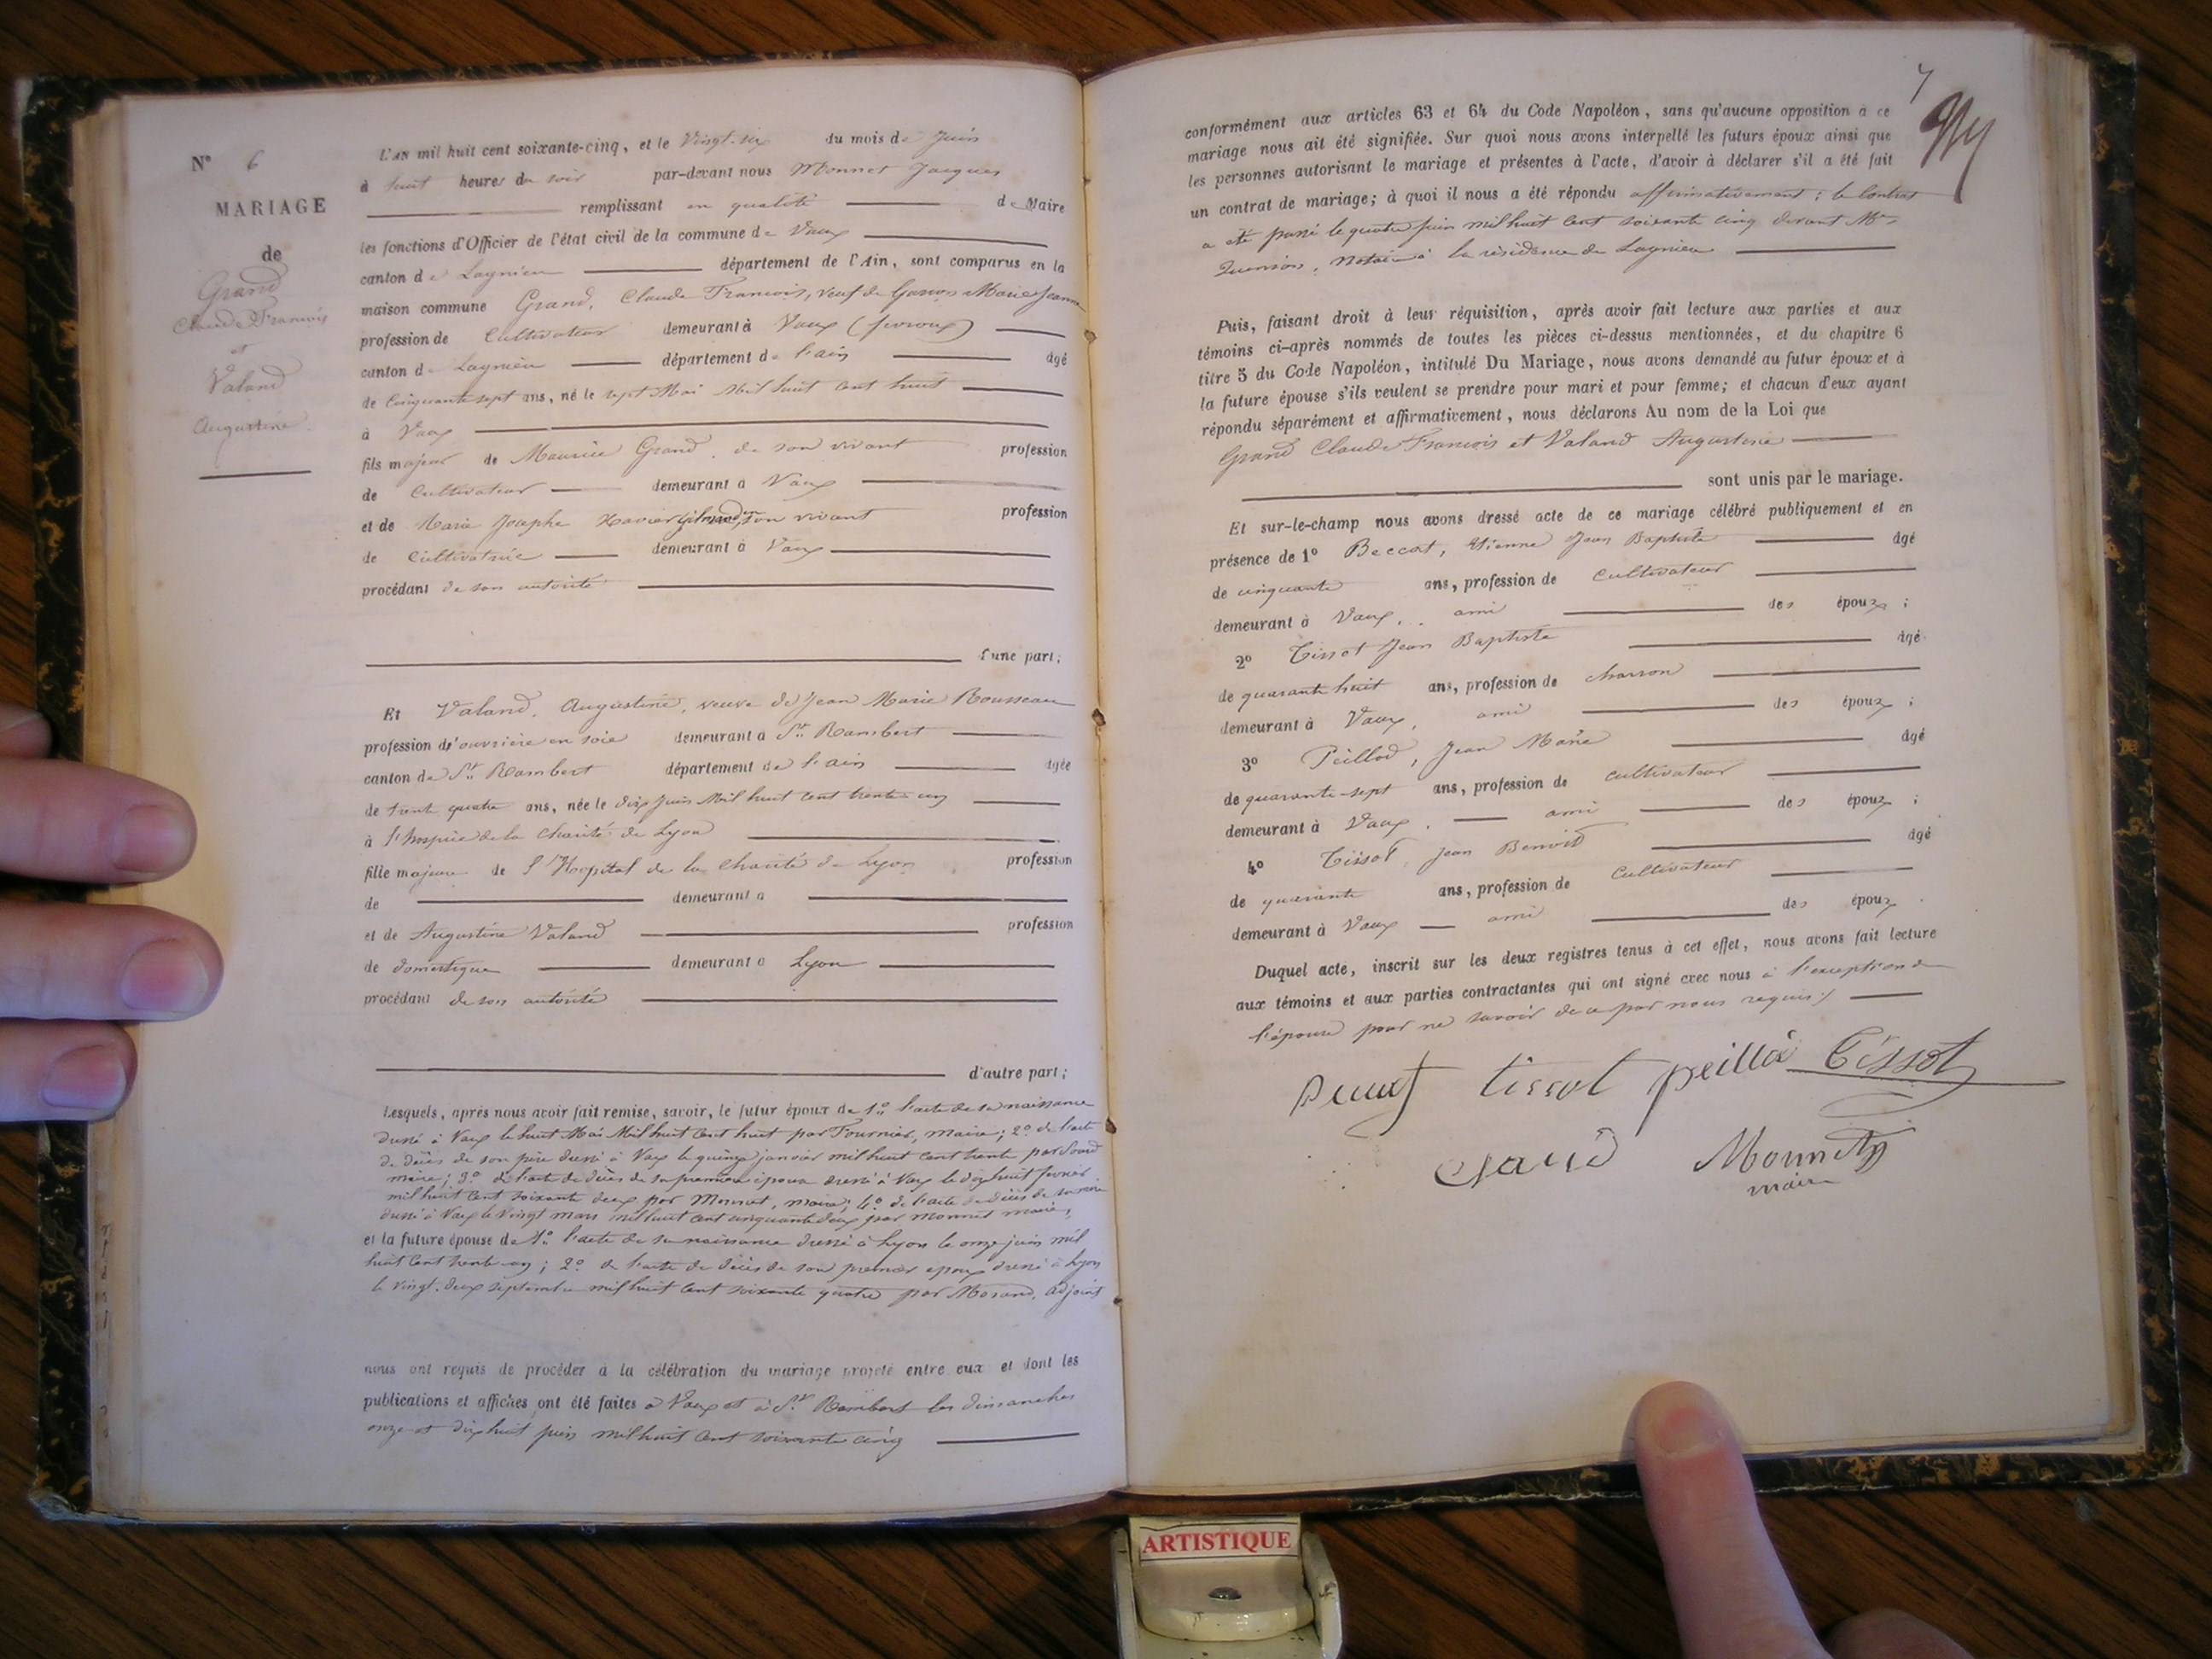 N° 6
MARIAGE
de
Grand
Claude Francois
et
Valand
Augustine
L'AN mil huit cent soixante-cinq, et le Vingt-six du mois de Juin
à huit heures du soir par-devant nous Monnet Jacques
remplissant en qualité de Maire
les fonctions d'Officier de l'état civil de la commune de Vaux
canton de Lagnieu département de l'Ain, sont comparus en la
maison commune Grand, Claude Francois, veuf de Marie Jeanne
profession de Cultivateur demeurant à Vaux
canton de Lagnieu département de l'ain âgé
de Cinquante sept ans, né le sept Mai Mil huit cent huit
à Vaux
fils majeur de Maurice Grand, de son vivant profession
de Cultivateur demeurant à Vaux
et de Marie Josephe Xavier son vivant profession
de Cultivatrice demeurant à Vaux
procédant de son autorité
d'une part;
Et Valand, Augustine, veuve de Jean Marie Rousseau
profession d'ouvrière en soie demeurant à St Rambert
canton de St Rambert département de l'ain âgée
de trente quatre ans, née le dix juin Mil huit cent trente un
à l'hospice de la Charité de Lyon
fille majeure de l'Hopital de la Charité de Lyon profession
de demeurant à
et de Augustine Valand profession
de domestique demeurant à Lyon
procédant de son autorité
d'autre part;
Lesquels, après nous avoir fait remise, savoir, le futur époux de 1° l'acte de sa naissance
dressé à Vaux le huit Mai Mil huit cent huit par Fournier, maire; 2° de l'acte
de décès de son père dressé à Vaux le quinze janvier mil huit cent trente par
maire; 3° de l'acte de décès de sa première épouse dressé à Vaux le dix huit fevrier
mil huit cent soixante deux par Monnet, maire; 4° de l'acte de décès de sa mère
dressé à Vaux le vingt mars mil huit cent cinquante deux par Monnet maire,
et la future épouse de 1° l'acte de sa naissance dressé à Lyon le onze juin mil
huit cent trente-un; 2° de l'acte de décès de son premier epoux dressé à Lyon
le vingt-deux septembre mil huit cent soixante quatre par Morand, adjoint
nous ont requis de procéder à la célébration du mariage projeté entre eux et dont les
publications et affiches ont été faites à Vaux et à St Rambert les dimanches
onze et dix huit juin mil huit cent soixante cinq
7
conformément aux articles 63 et 64 du Code Napoléon, sans qu'aucune opposition à ce
mariage nous ait été signifiée. Sur quoi nous avons interpellé les futurs époux ainsi que
les personnes autorisant le mariage et présentes à l'acte, d'avoir à déclarer s'il a été fait
un contrat de mariage; à quoi il nous a été répondu affirmativement; le Contrat
a été passé le quatre juin mil huit cent soixante cinq devant Me
notaire à la résidence de Lagnieu
Puis, faisant droit à leur réquisition, après avoir fait lecture aux parties et aux
témoins ci-après nommés de toutes les pièces ci-dessus mentionnées, et du chapitre 6
titre 5 du Code Napoléon, intitulé Du Mariage, nous avons demandé au futur époux et à
la future épouse s'ils veulent se prendre pour mari et pour femme; et chacun d'eux ayant
répondu séparément et affirmativement, nous déclarons Au nom de la Loi que
Grand Claude Francois et Valand Augustine
sont unis par le mariage.
Et sur-le-champ nous avons dressé acte de ce mariage célébré publiquement et en
présence de 1° Beccat, Etienne Jean Baptiste âgé
de cinquante ans, profession de Cultivateur
demeurant à Vaux, ami des époux;
2° Tissot Jean Baptiste âgé
de quarante huit ans, profession de charron
demeurant à Vaux, ami des époux;
3° Peillod, Jean Marie âgé
de quarante-sept ans, profession de cultivateur
demeurant à Vaux, ami des époux;
4° Tissot, Jean Benoit âgé
de quarante ans, profession de Cultivateur
demeurant à Vaux ami des époux.
Duquel acte, inscrit sur les deux registres tenus à cet effet, nous avons fait lecture
aux témoins et aux parties contractantes qui ont signé avec nous à l'exception de
l'épouse pour ne savoir de ce par nous requis
tissot peillod Tissot
Monnet
maire
ARTISTIQUE